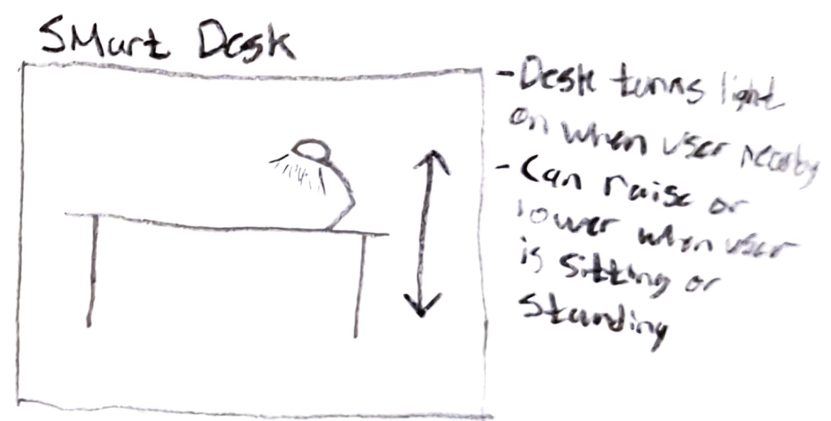 SMart Desk
- Desk turns light
on when user nearby
- Can raise or
lower when user
is sitting or
standing